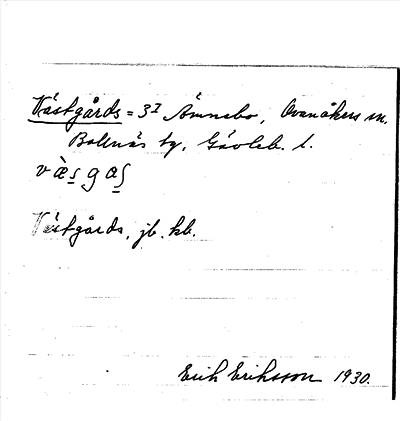 Västgårds = 3I Ämnebo, Ovanåkers sn.
Bollnäs tg, Gävleb. l.
v æ̀s g as
Västgårds, jb. kb.
Erik Eriksson 1930.